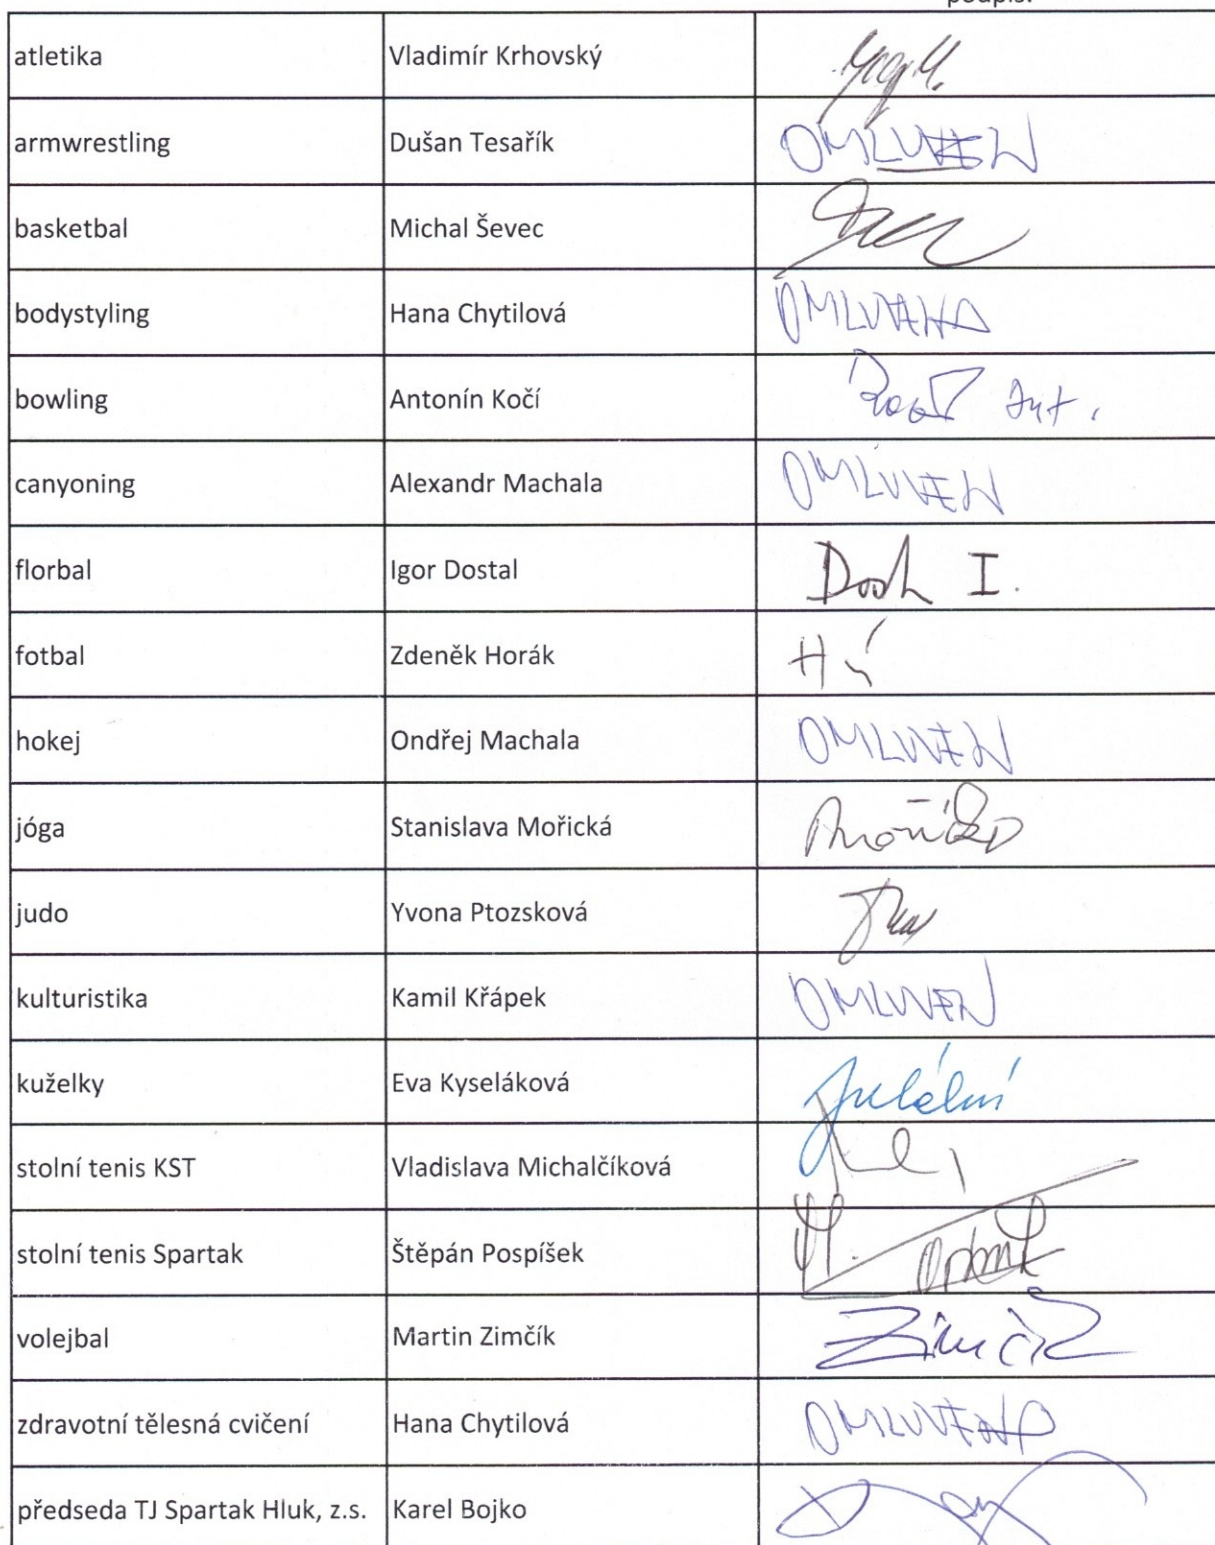 podpis:
atletika Vladimír Krhovský
armwrestling Dušan Tesařík OMLUVEN
basketbal Michal Ševec
bodystyling Hana Chytilová OMLUVENA
bowling Antonín Kočí Ant.
canyoning Alexandr Machala OMLUVEN
florbal Igor Dostal I.
fotbal Zdeněk Horák
hokej Ondřej Machala OMLUVEN
jóga Stanislava Mořická
judo Yvona Ptozsková
kulturistika Kamil Křápek OMLUVEN
kuželky Eva Kyseláková
stolní tenis KST Vladislava Michalčíková
stolní tenis Spartak Štěpán Pospíšek
volejbal Martin Zimčík Zimčík
zdravotní tělesná cvičení Hana Chytilová OMLUVENA
předseda TJ Spartak Hluk, z.s. Karel Bojko